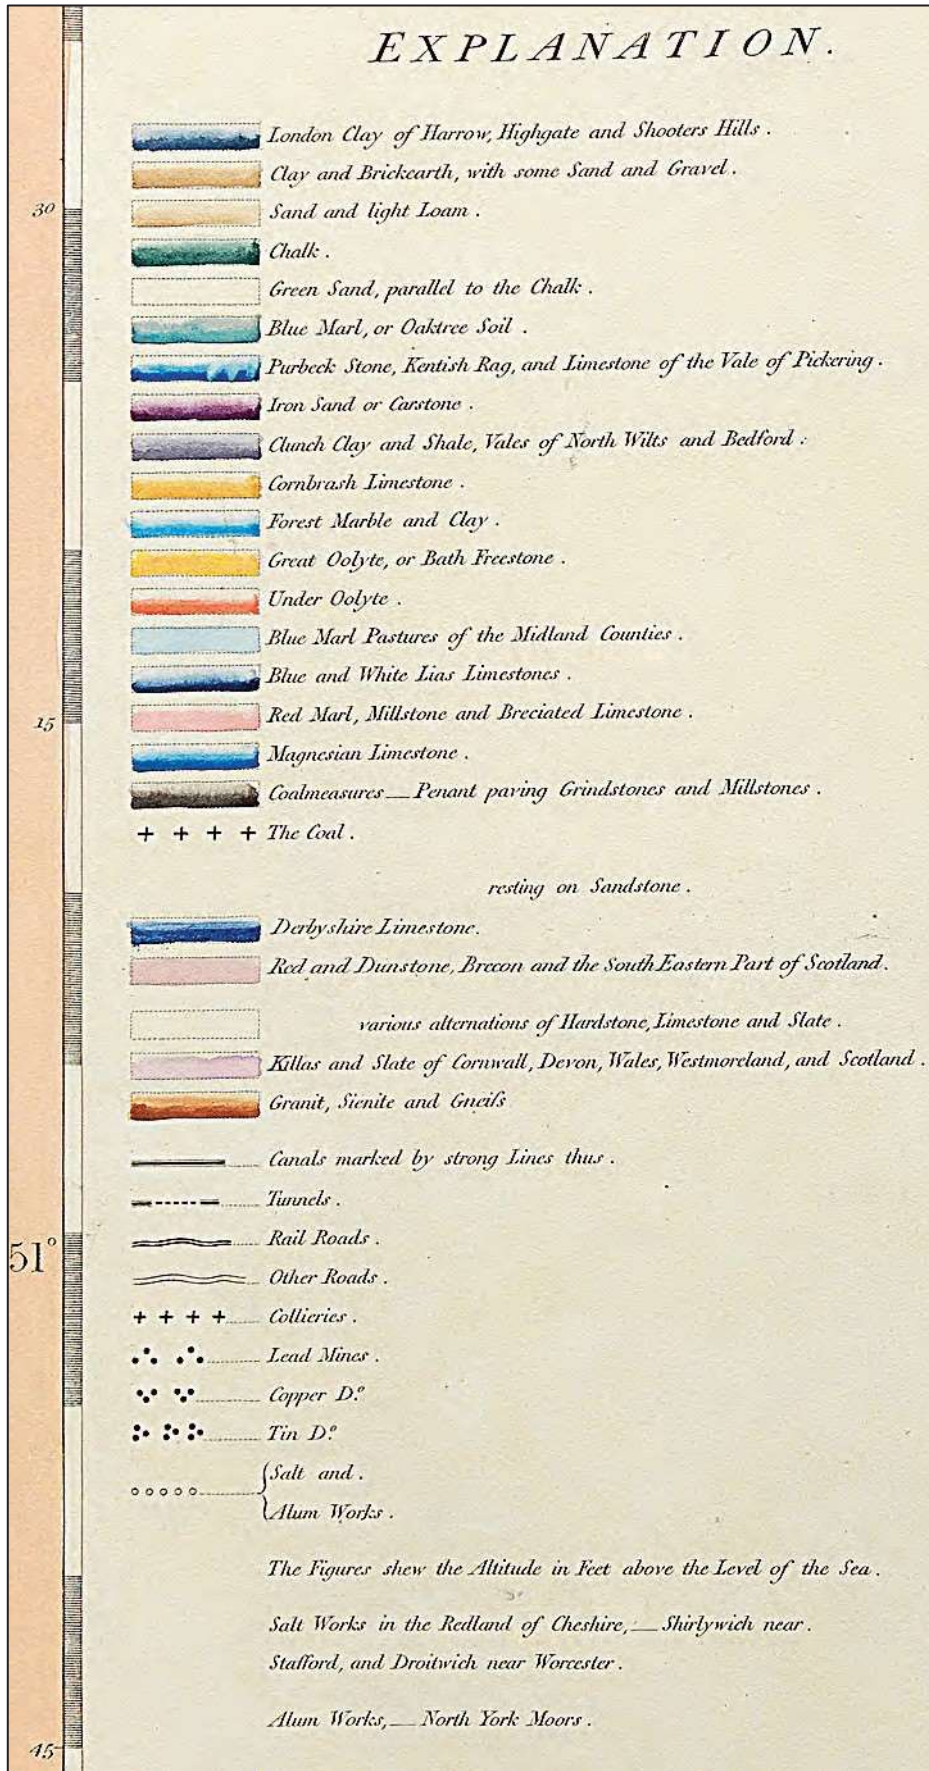 EXPLANATION.
London Clay of Harrow, Highgate and Shooters Hills.
Clay and Brickearth, with some Sand and Gravel.
30
Sand and light Loam.
Chalk.
Green Sand, parallel to the Chalk.
Blue Marl, or Oaktree Soil.
Purbeck Stone, Kentish Rag, and Limestone of the Vale of Pickering.
Iron Sand or Carstone.
Clunch Clay and Shale, Vales of North Wilts and Bedford:
Cornbrash Limestone.
Forest Marble and Clay.
Great Oolyte, or Bath Freestone.
Under Oolyte.
Blue Marl Pastures of the Midland Counties.
Blue and White Lias Limestones.
15
Red Marl, Millstone and Breciated Limestone.
Magnesian Limestone.
Coalmeasures—Penant paving Grindstones and Millstones.
The Coal.
resting on Sandstone.
Derbyshire Limestone.
Red and Dunstone, Brecon and the South Eastern Part of Scotland.
various alternations of Hardstone, Limestone and Slate.
Killas and Slate of Cornwall, Devon, Wales, Westmoreland, and Scotland.
Granit, Sienite and Gneiſs
Canals marked by strong Lines thus.
Tunnels.
Rail Roads.
51°
Other Roads.
Collieries.
Lead Mines.
Copper Do.
Tin Do.
Salt and.
Alum Works.
The Figures shew the Altitude in Feet above the Level of the Sea.
Salt Works in the Redland of Cheshire,—Shirlywich near.
Stafford, and Droitwich near Worcester.
Alum Works,—North York Moors.
45